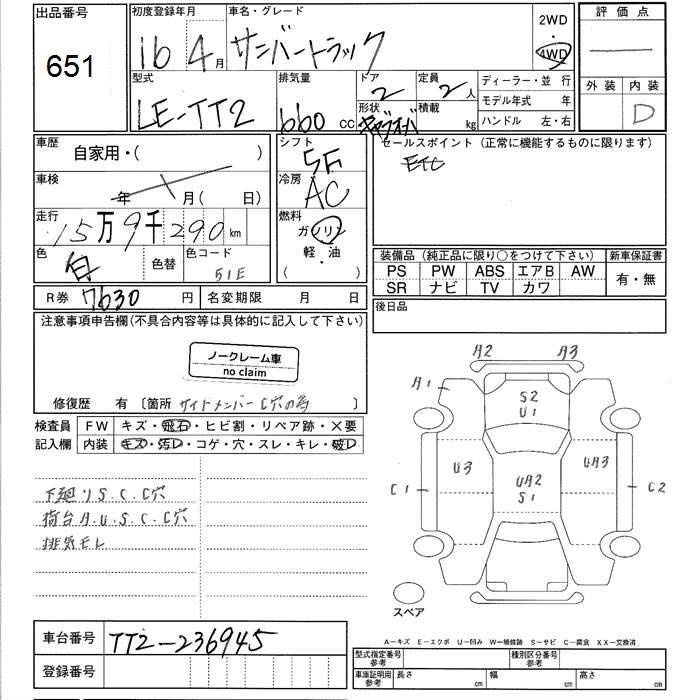 出品番号
651
初度登録年月
16 4月
車名・グレード
サンバートラック
2WD
・
4WD
評価点
外装 内装
D
型式
LE-TT2
排気量
660 cc
ドア
2
定員
2人
形状
キャブオーバ
積載
kg
ディーラー・並 行
モデル年式 年
ハンドル 左・右
車歴
自家用・( )
シフト
5F
セールスポイント (正常に機能するものに限ります)
ETC
車検
年 月( 日)
冷房
AC
走行
15万9千290km
燃料
ガソリン
軽・油
( )
色
白
色替
色コード
51E
装備品 (純正品に限り○をつけて下さい)
新車保証書
PS PW ABS エアB AW
SR ナビ TV カワ
有・無
R券 7630円
名変期限 月 日
後日品
注意事項申告欄(不具合内容等は具体的に記入して下さい)
ノークレーム車
no claim
修復歴 有 〔箇所 サイドメンバーC穴の為 〕
検査員 FW キズ・飛石・ヒビ割・リペア跡・×要
記入欄 内装 キズ・汚レ・コゲ・穴・スレ・キレ・破レ
下廻りS.C.C穴
荷台A.U.S.C.C穴
排気モレ
A2 A3
A1
S2
U1
U3
UA2
S1
UA3
C1
C2
スペア
A―キズ E―エクボ U―凹み W―補修跡 S―サビ C―腐食 XX―交換済
車台番号 TT2-236945
登録番号
型式指定番号
参考
種別区分番号
参考
車庫証明用
参考
長さ cm
幅 cm
高さ cm